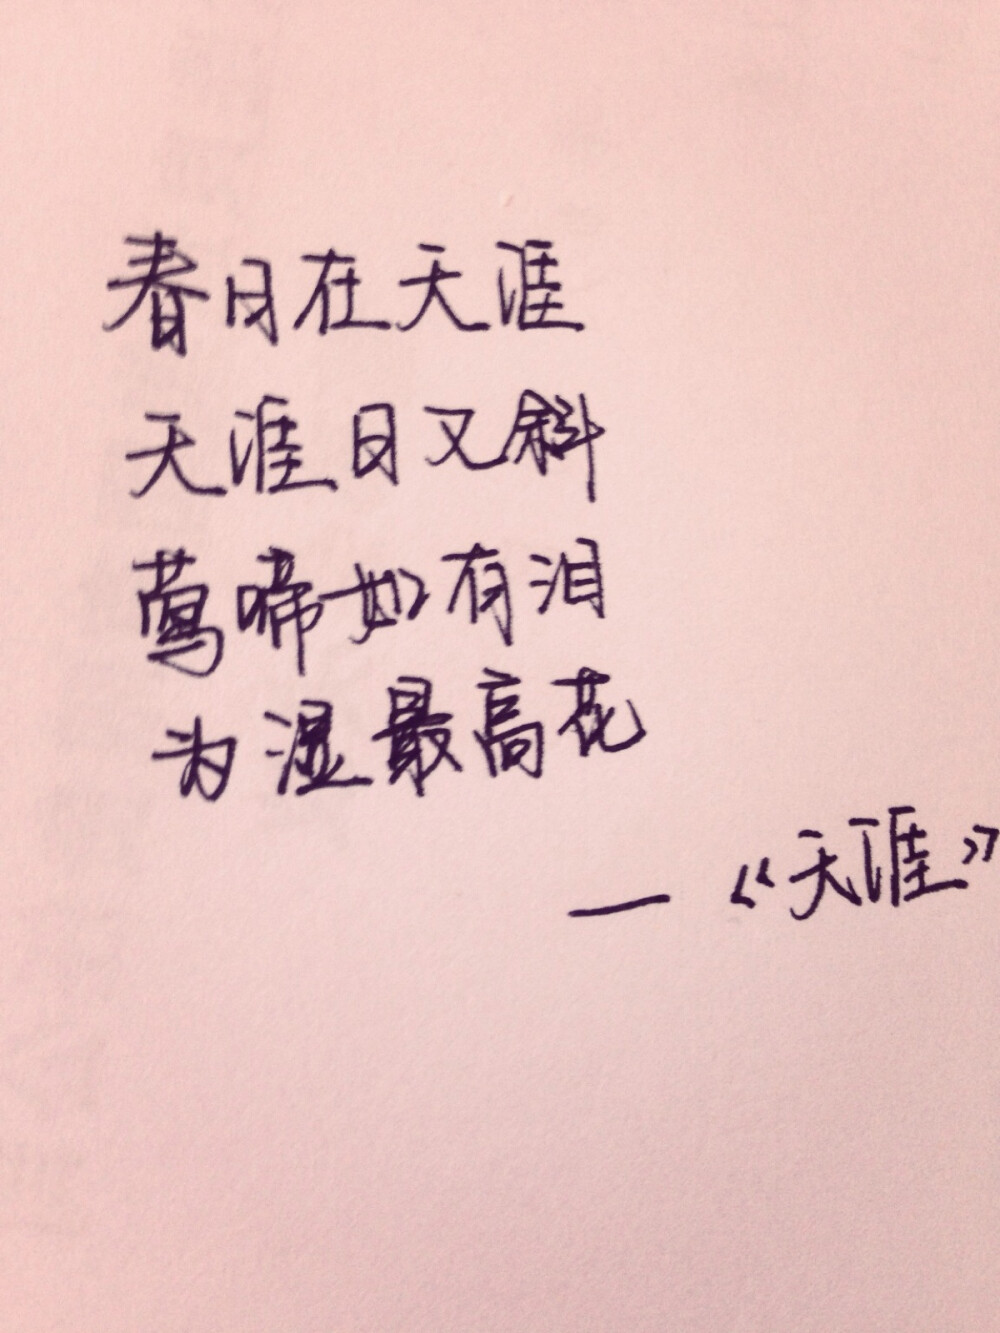 春日在天涯
天涯日又斜
莺啼如有泪
为湿最高花
—《天涯》